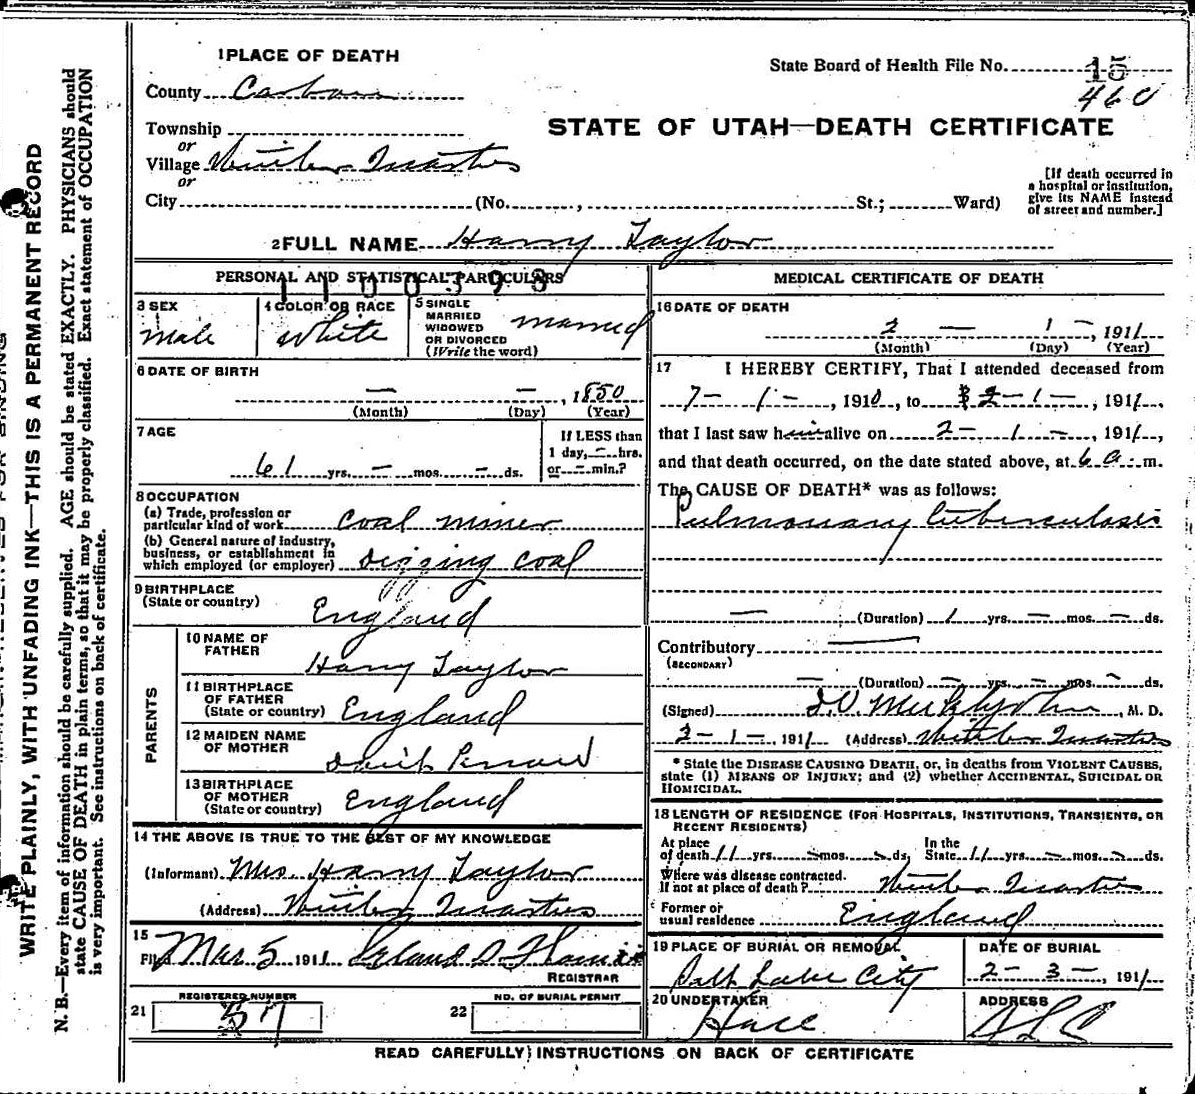 1 PLACE OF DEATH
State Board of Health File No. 15
460
County Carbon
STATE OF UTAH—DEATH CERTIFICATE
Township
or
Village Winter Quarters
or
City (No. , St.; Ward)
[If death occurred in
a hospital or institution,
give its NAME instead
of street and number.]
2 FULL NAME Harry Taylor
PERSONAL AND STATISTICAL PARTICULARS
1100398
3 SEX
Male
4 COLOR OR RACE
White
5 SINGLE
MARRIED
WIDOWED
OR DIVORCED
(Write the word)
married
6 DATE OF BIRTH
— — , 1850
(Month) (Day) (Year)
7 AGE
61 yrs. — mos. — ds.
If LESS than
1 day, — hrs.
or — min.?
8 OCCUPATION
(a) Trade, profession or
particular kind of work coal miner
(b) General nature of industry,
business, or establishment in
which employed (or employer) digging coal
9 BIRTHPLACE
(State or country)
England
PARENTS
10 NAME OF
FATHER
Harry Taylor
11 BIRTHPLACE
OF FATHER
(State or country) England
12 MAIDEN NAME
OF MOTHER
13 BIRTHPLACE
OF MOTHER
(State or country) England
14 THE ABOVE IS TRUE TO THE BEST OF MY KNOWLEDGE
(Informant) Mrs Harry Taylor
(Address) Winter Quarters
15
Filed Mar 5 1911
REGISTRAR
REGISTERED NUMBER
21 57
NO. OF BURIAL PERMIT
22
MEDICAL CERTIFICATE OF DEATH
16 DATE OF DEATH
2 — 1 — , 1911
(Month) (Day) (Year)
17 I HEREBY CERTIFY, That I attended deceased from
7 — 1 — , 1910, to 2 — 1 — , 1911,
that I last saw him alive on 2 — 1 — , 1911,
and that death occurred, on the date stated above, at 6 a. m.
The CAUSE OF DEATH* was as follows:
Pulmonary tuberculosis
— (Duration) 1 yrs. — mos. — ds.
Contributory —
(SECONDARY)
— (Duration) — yrs. — mos. — ds.
(Signed) , M. D.
2 — 1 — , 1911 (Address) Winter Quarters
* State the DISEASE CAUSING DEATH, or, in deaths from VIOLENT CAUSES,
state (1) MEANS OF INJURY; and (2) whether ACCIDENTAL, SUICIDAL OR
HOMICIDAL.
18 LENGTH OF RESIDENCE (FOR HOSPITALS, INSTITUTIONS, TRANSIENTS, OR
RECENT RESIDENTS)
At place
of death 11 yrs. — mos. — ds.
In the
State 11 yrs. — mos. — ds.
Where was disease contracted.
If not at place of death? Winter Quarters
Former or
usual residence England
19 PLACE OF BURIAL OR REMOVAL
Salt Lake City
DATE OF BURIAL
2 — 3 — , 1911
20 UNDERTAKER
Hall
ADDRESS
SLC
READ CAREFULLY INSTRUCTIONS ON BACK OF CERTIFICATE
WRITE PLAINLY, WITH UNFADING INK—THIS IS A PERMANENT RECORD
N. B.—Every item of information should be carefully supplied. AGE should be stated EXACTLY. PHYSICIANS should
state CAUSE OF DEATH in plain terms, so that it may be properly classified. Exact statement of OCCUPATION
is very important. See instructions on back of certificate.